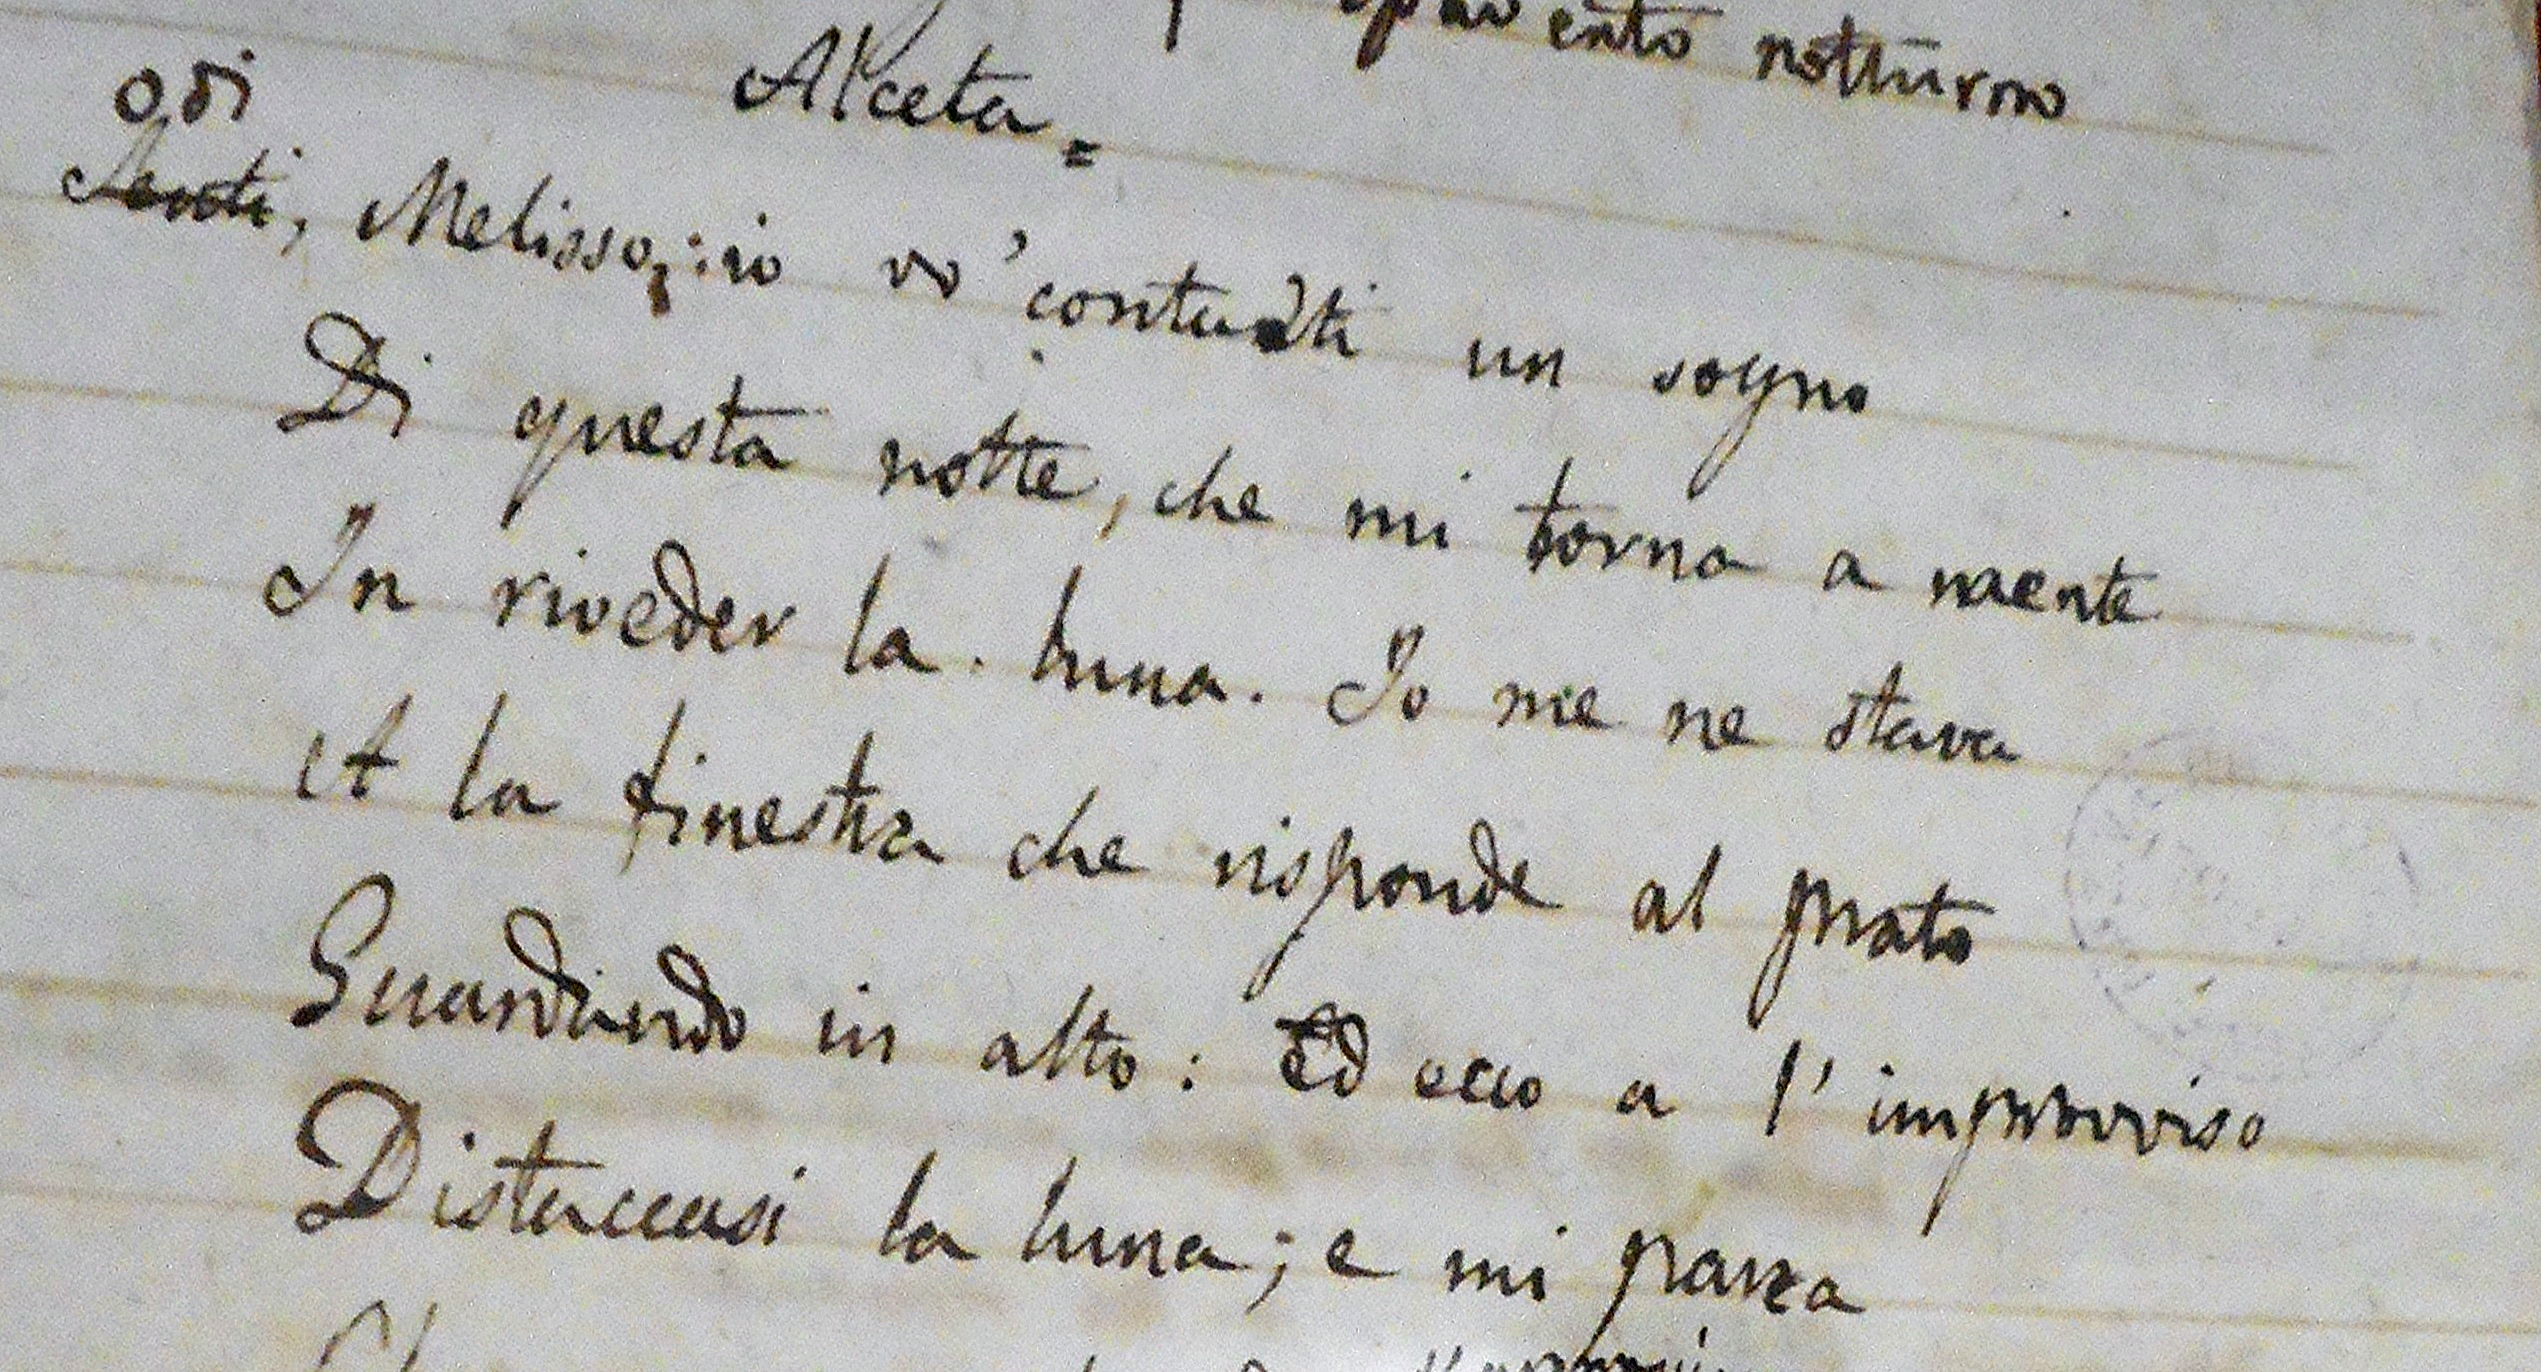 spavento notturno
Alceta =
odi
Senti, Melisso,: io vo' contarti un sogno
Di questa notte, che mi torna a mente
In riveder la. luna. Io me ne stava
A la finestra che risponde al prato
Guardando in alto: Ed ecco a l'improvviso
Distaccasi la luna; e mi parea